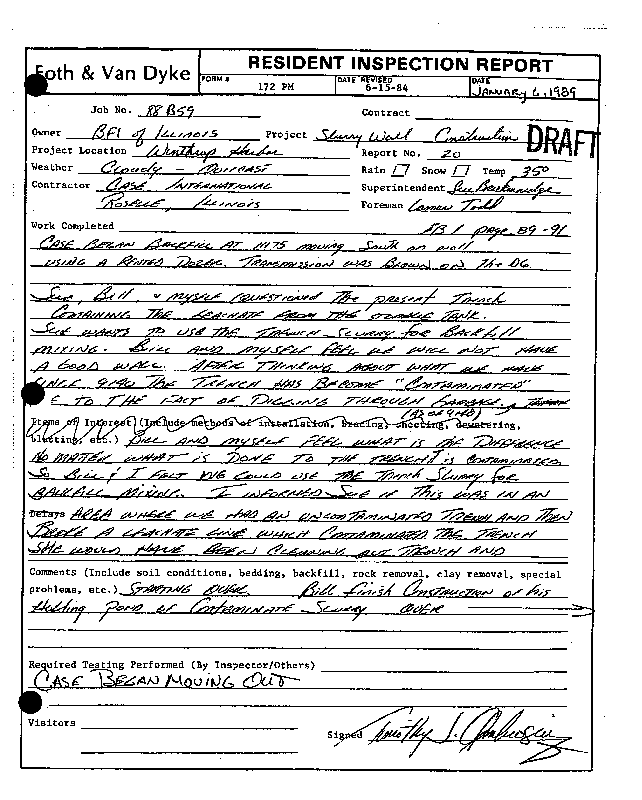 Foth & Van Dyke
RESIDENT INSPECTION REPORT
FORM # 172 PM
DATE REVISED 6-15-84
DATE JANUARY 6, 1989
Job No. 88B59 Contract
Owner BFI of Illinois Project Slurry Wall Construction DRAFT
Project Location Winthrop Harbor Report No. 20
Weather Cloudy - Overcast Rain Snow Temp 35°
Contractor CASE INTERNATIONAL Superintendent Sue
ROSELLE, ILLINOIS Foreman Lamar Todd
Work Completed FB 1 page 89-91
CASE BEGAN BACKFILL AT 1175 moving South on wall
USING A RENTED DOZER. TRANSMISSION WAS BLOWN ON The D6
Sue, Bill, & myself questioned The present Trench
CONTAINING THE LEACHATE FROM THE STORAGE TANK.
SUE WANTS TO USE THE TRENCH SLURRY FOR BACKFILL
MIXING. BILL AND MYSELF FEEL WE WILL NOT HAVE
A GOOD WALL. AFTER THINKING ABOUT WHAT WE HAVE
SINCE 9+90 THE TRENCH HAS BECOME "CONTAMINATED"
E TO THE FACT OF DIGGING THROUGH GARBAGE,
(AS OF 9+60)
Items of Interest (Include methods of installation, bracing, sheeting, dewatering,
blasting, etc.) BILL AND MYSELF FEEL WHAT IS THE DIFFERENCE
NO MATTER WHAT IS DONE TO THE TRENCH IT IS CONTAMINATED
So Bill & I FELT WE COULD USE THE TRENCH SLURRY FOR
BACKFILL MIXING. I INFORMED SUE IF THIS WAS IN AN
Delays AREA WHERE WE HAD AN UNCONTAMINATED TRENCH AND THEN
BROKE A LEACHATE LINE WHICH CONTAMINATED THE TRENCH
SHE WOULD HAVE BEEN CLEANING OUT TRENCH AND
Comments (Include soil conditions, bedding, backfill, rock removal, clay removal, special
problems, etc.) STARTING OVER Bill finish Construction of his
Holding Pond of CONTAMINATE SLURRY OVER
Required Testing Performed (By Inspector/Others)
CASE BEGAN MOVING OUT
Visitors
Signed Timothy J.